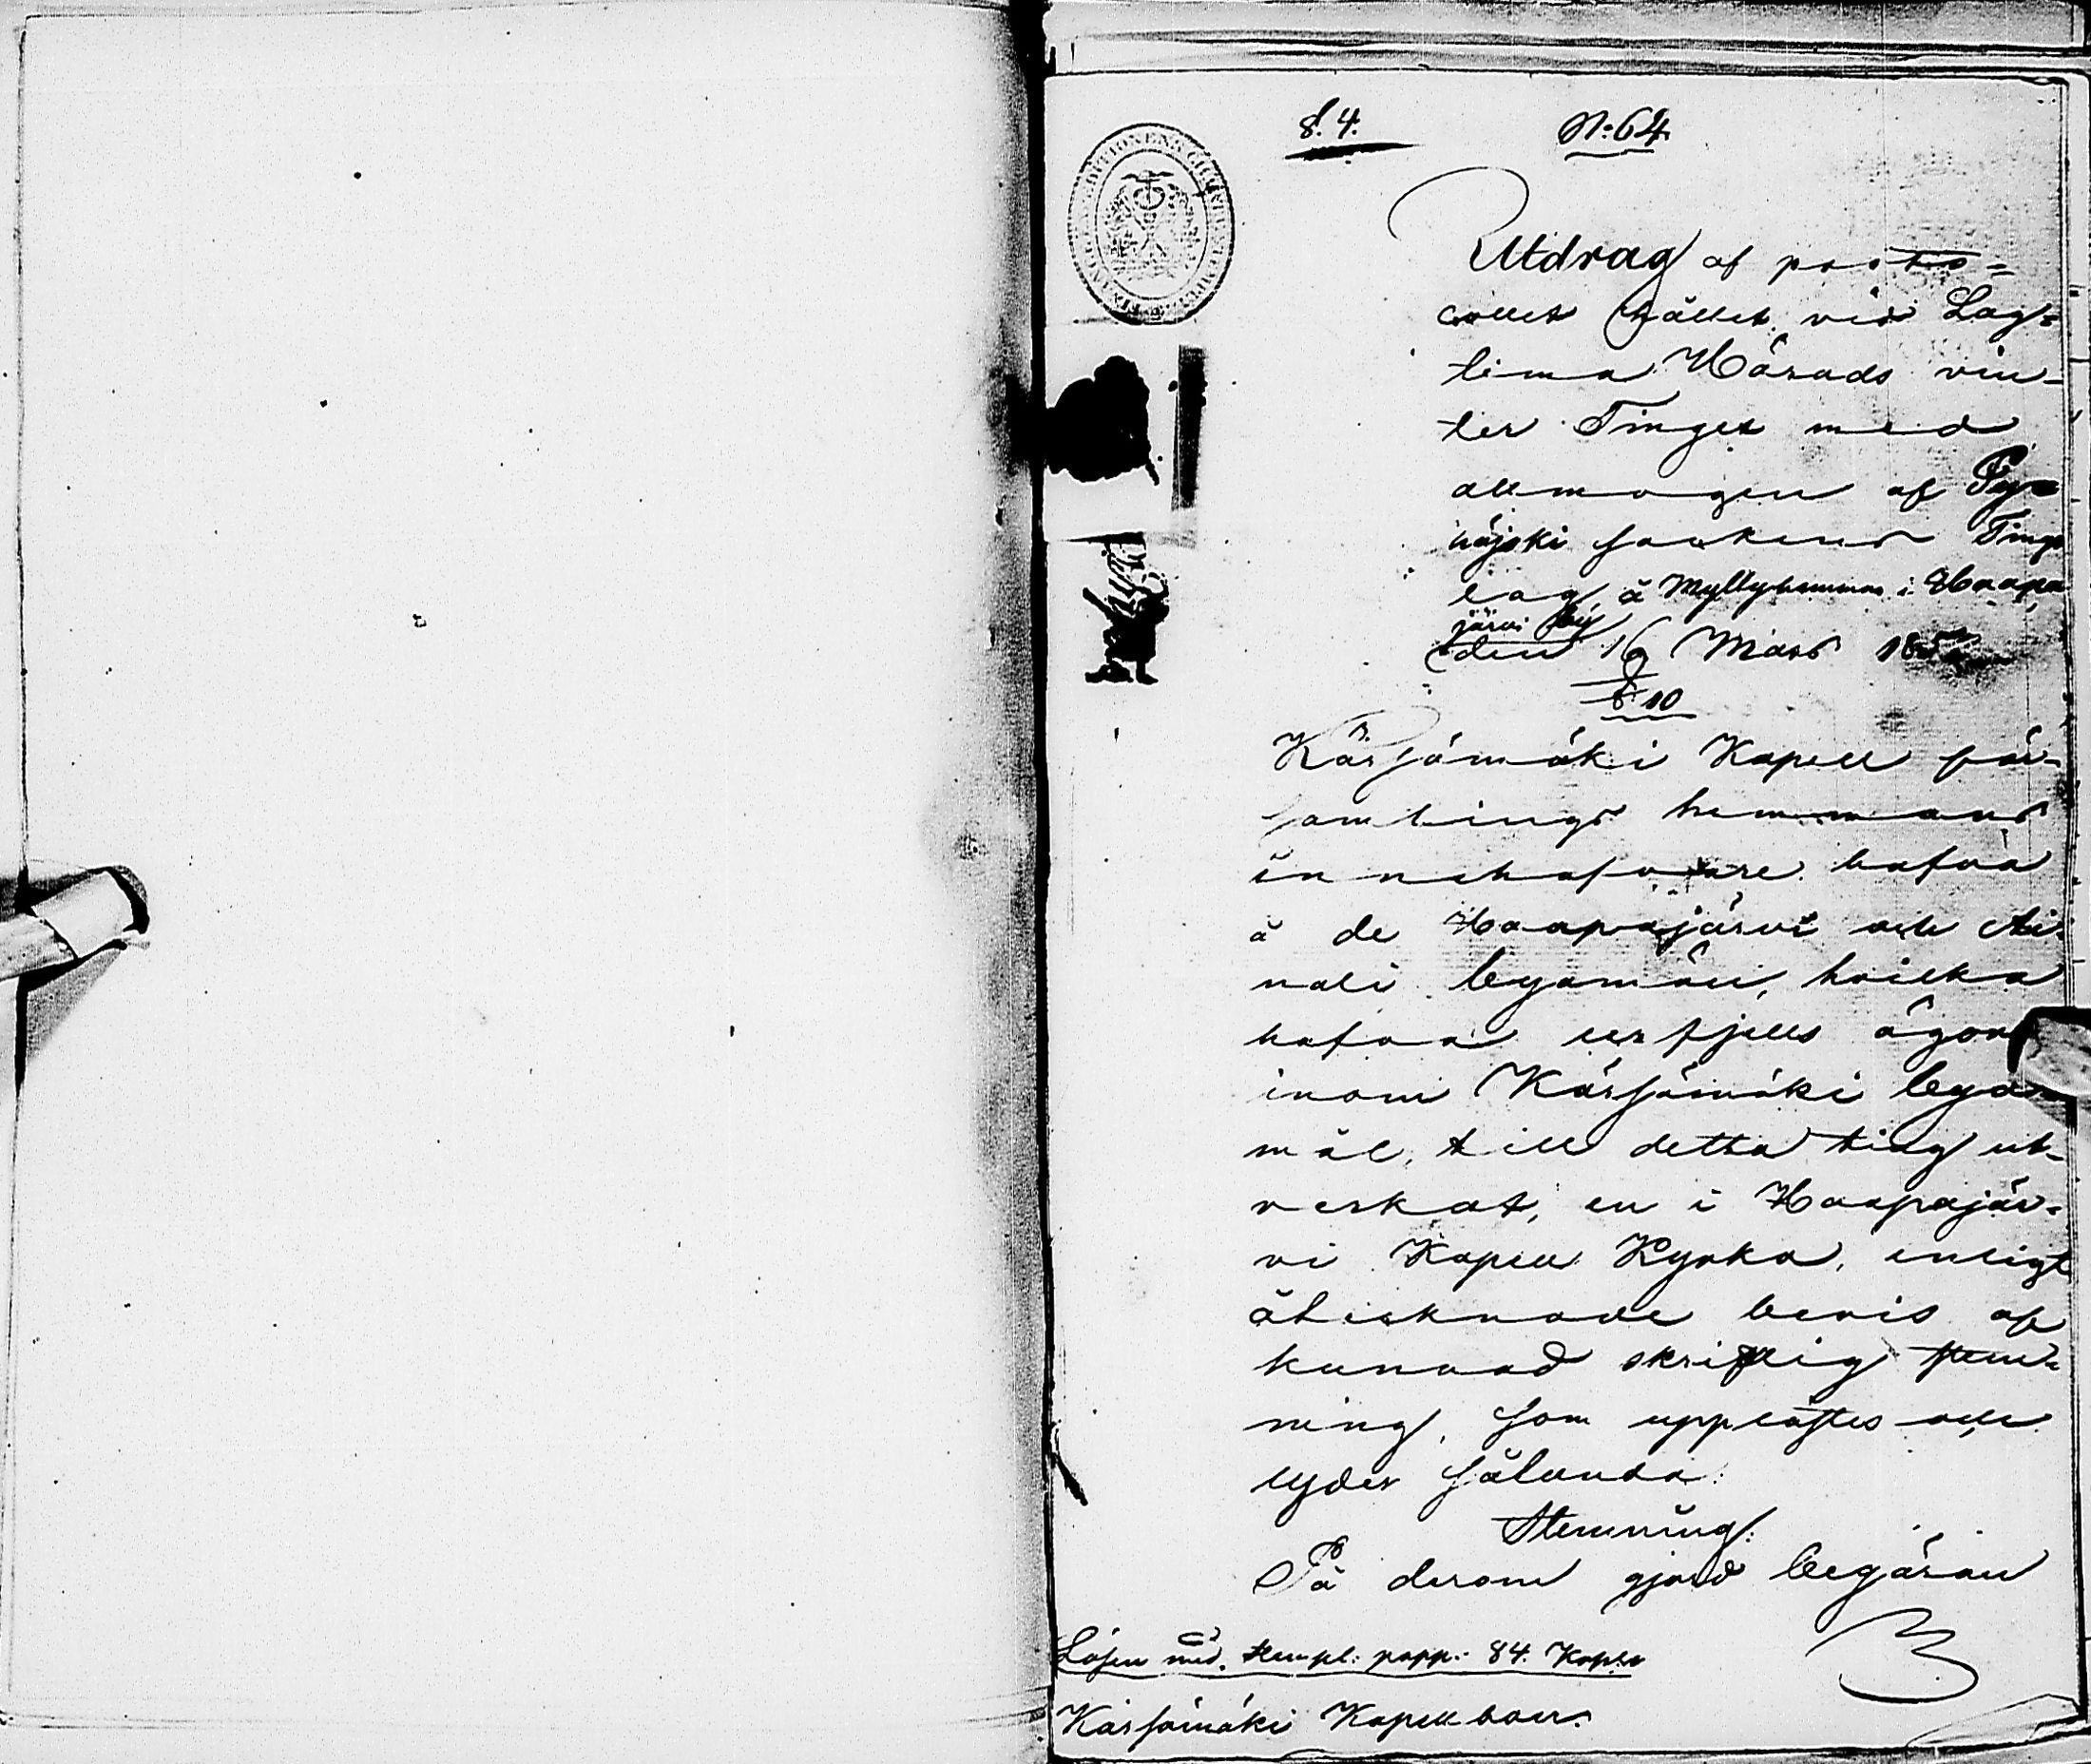 §. 4. N:64
Utdrag af proto=
collet hållet vid Lag=
tima Härads vin-
ter Tinget med
allmogen af Py=
häjoki Sockens Tings
lag, å Myllyhemman i Haapa
järvi by
den 16 Mars
§ 10
Kärsämäki Kapell för-
samlings hemmans
innehafvare hafva
å de Haapajärvi och Ai-
nali byamän, hvilka
hafva urfjells ägor
inom Kärsämäki bya-
mål, till detta ting ut-
verkat, en i Haapajär-
vi Kapell Kyrka, enligt
åtecknade bevis af
kunnad skriftlig stem-
ning, som upplästes och
lyder sålunda:
Stemning:
På derom gjord begäran
Lösen med stempl: papp. 84. Kop:r
Kärsämäki Kapellboer.